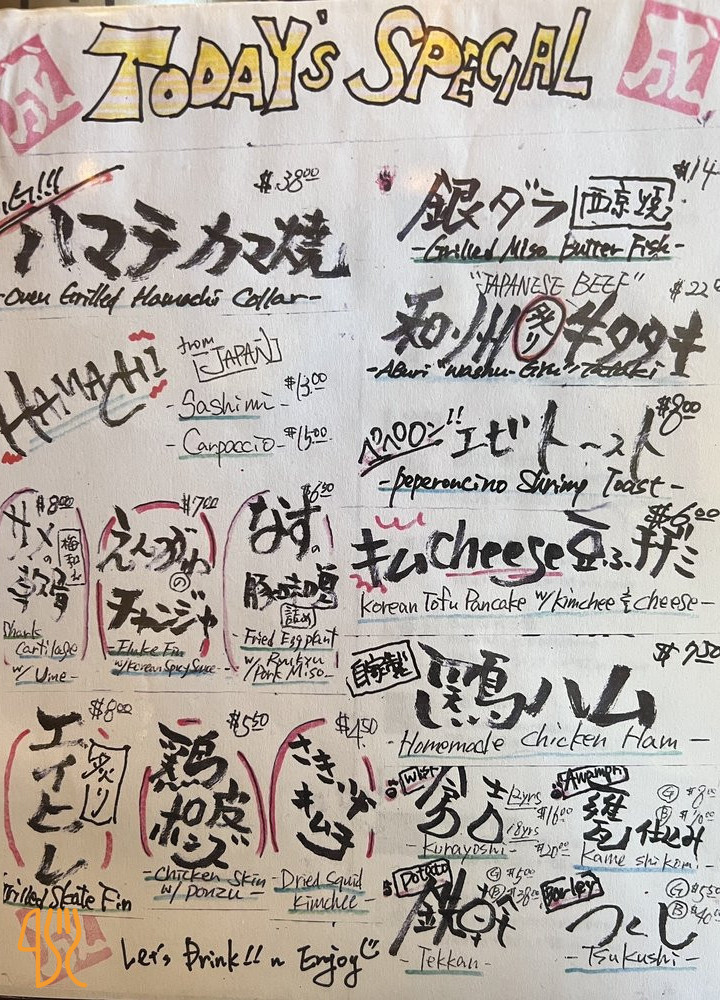 TODAY'S SPECIAL
$38.00
ハマチカマ焼
-Oven Grilled Hamachi Collar-
HAMACHI
from JAPAN
-Sashimi- $13.00
-Carpaccio- $15.00
$14
銀ダラ 西京焼
-Grilled Miso Butter Fish-
"JAPANESE BEEF"
$22
和州炙り牛タタキ
-Aburi "Washu-Gyu" Tataki
$8.00
ペペロン!! エビトースト
-Peperoncino Shrimp Toast-
$6.00
キムcheese豆ふチヂミ
Korean Tofu Pancake w/kimchee & cheese-
$8.00
サメの軟骨
梅和え
Shark
Cartilage
w/ Ume-
$7.00
えんがわ
の
チャンジャ
-Fluke Fin
w/Korean Spicy Sauce-
$6.50
なすの
豚
詰め
-Fried Eggplant
w/ Ryukyu
Pork Miso-
$7.50
自家製
鶏ハム
-Homemade Chicken Ham-
$8.00
エイヒレ
炙り
Grilled Skate Fin
$5.50
鶏皮
ポンズ
-Chicken Skin
w/ Ponzu-
$4.50
さきいか
キムチ
-Dried Squid
Kimchee-
12yrs
$16.00
18yrs
$20.00
-Kurayoshi-
Awamori
G $8.00
B
仕込み
Kame shikomi-
Potato
G $5.00
B
-Tekkan-
Barley
G $5.50
B
つくし
-Tsukushi-
Let's Drink!! n Enjoy